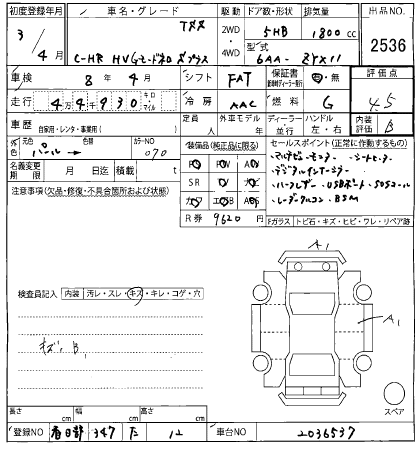 初度登録年月
車名・グレード
駆動
ドア数・形状
排気量
出品NO.
3/
4月
C-HR HV Gモードネロ Sプラス
2WD
・
4WD
5HB
1800 cc
型式
6AA- ZYX11
2536
車検
8年4月
シフト
FAT
保証書
・無
評価点
4.5
走行
キロ
マイル
冷房
AAC
燃料
G
車歴
自家用・レンタ・事業用( )
定員
人
外車モデル
年
ディーラー・並行
ハンドル
左・右
内装評価
B
外色
元色
パール
色替
カラーNO
070
装備品(純正品に限る)
セールスポイント(正常に作動するもの)
名義変更期限
月 日迄
積載
t
SR
R券
9620円
マルチビューモニター・シートヒーター
デジタルインナーミラー
ハーフレザー・USBポート・SOSコール
レーダークルコン・BSM
注意事項(欠品・修復・不具合箇所および状態)
Fガラス
トビ石・キズ・ヒビ・ワレ・リペア跡
検査員記入
内装
汚レ・スレ・キズ・キレ・コゲ・穴
キズ、B
A1
A1
スペア
長さ
cm
幅
cm
高さ
cm
登録NO
春日部 347 た 12
車台NO
2036537